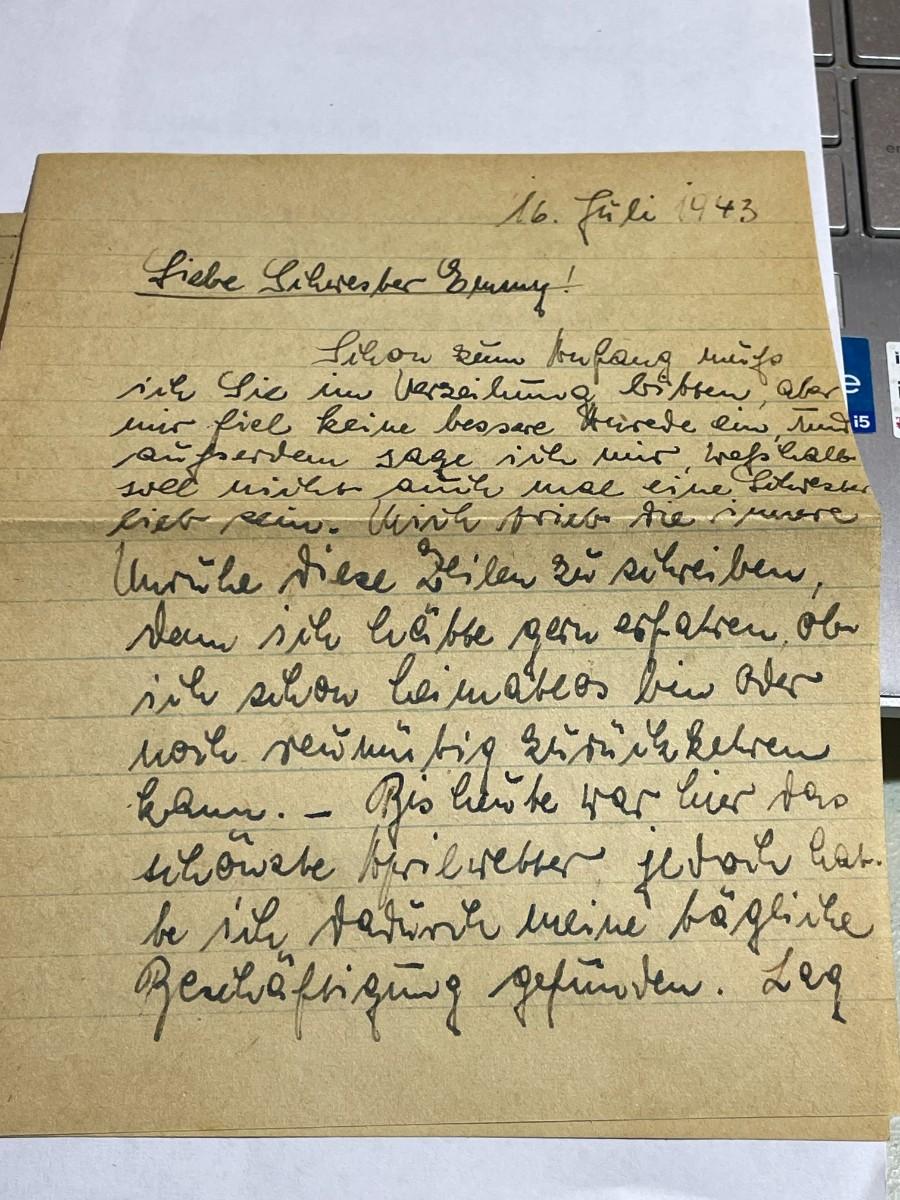 16. Juli 1943
Liebe Schwester Emmy!
Schon zum Anfang muß
ich Sie im Verzeihung bitten, aber
mir fiel keine bessere Anrede ein, und
außerdem sage ich mir, weßhalb
soll nicht auch mal eine Schwester
lieb sein. Mich trieb die innere
Unruhe diese Zeilen zu schreiben,
denn ich hätte gern erfahren, ob
ich schon heimatlos bin oder
noch reumütig zurückkehren
kann. – Bis heute war hier das
schönste Aprilwetter, jedoch hab-
be ich dadurch meine tägliche
Beschäftigung gefunden. Lag
e
i5